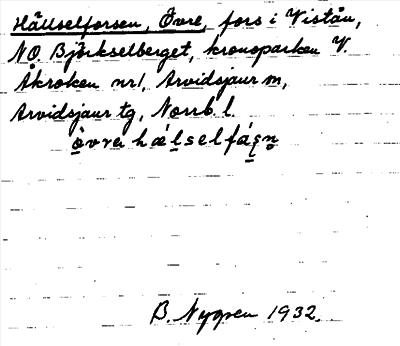 Hällselforsen, Övre, fors i Vistån,
NO. Björkselberget, kronoparken V.
Åkroken nr 1, Arvidsjaur sn,
Arvidsjaur tg, Norrb. l.
B. Nygren 1932.